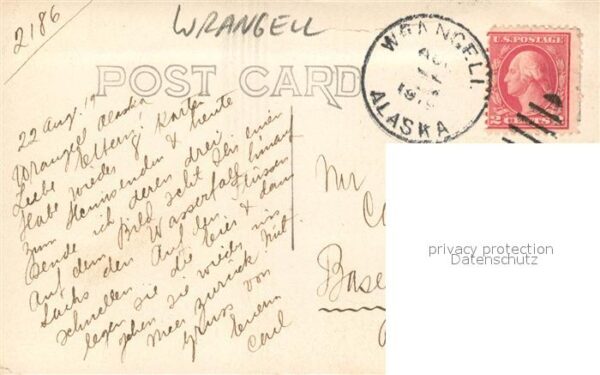 2186
WRANGELL
POST CARD
WRANGELL
AUG
ALASKA
U.S. POSTAGE
2 CENTS 2
22 Aug. 19
Wrangel Alaska
Liebe Eltern!
Habe wieder 8 Karten
zum Heimsenden & heute
sende ich deren drei
Auf dem Bild seht Ihr einen
Lachs den Wasserfall hinauf
schnellen Auf den Flüssen
legen sie die Eier & dann
gehen sie wieder ins
Meer zurück Mit
Gruss von
Eurem
Carl
Mr
C
Base
privacy protection
Datenschutz